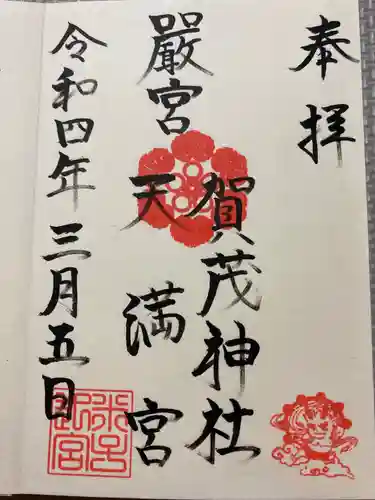 奉拝
賀茂神社
天満宮
嚴宮
令和四年三月五日